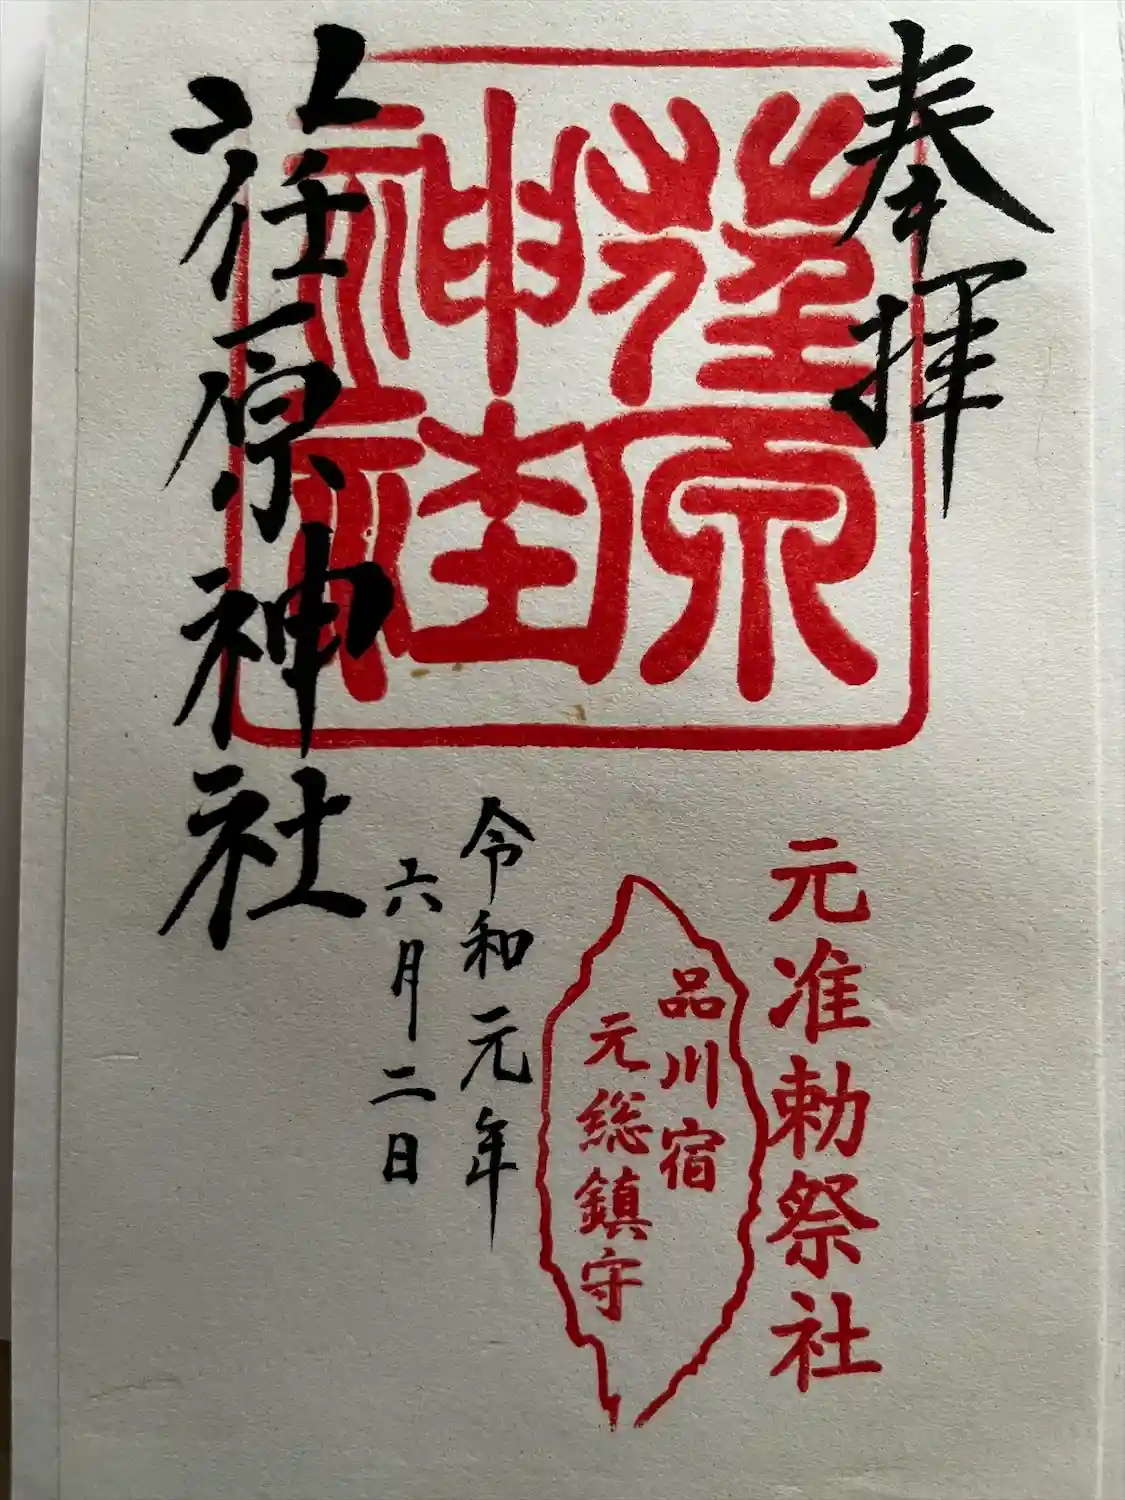 奉拝
荏原神社
荏原神社
元准勅祭社
品川宿
元総鎮守
令和元年
六月二日